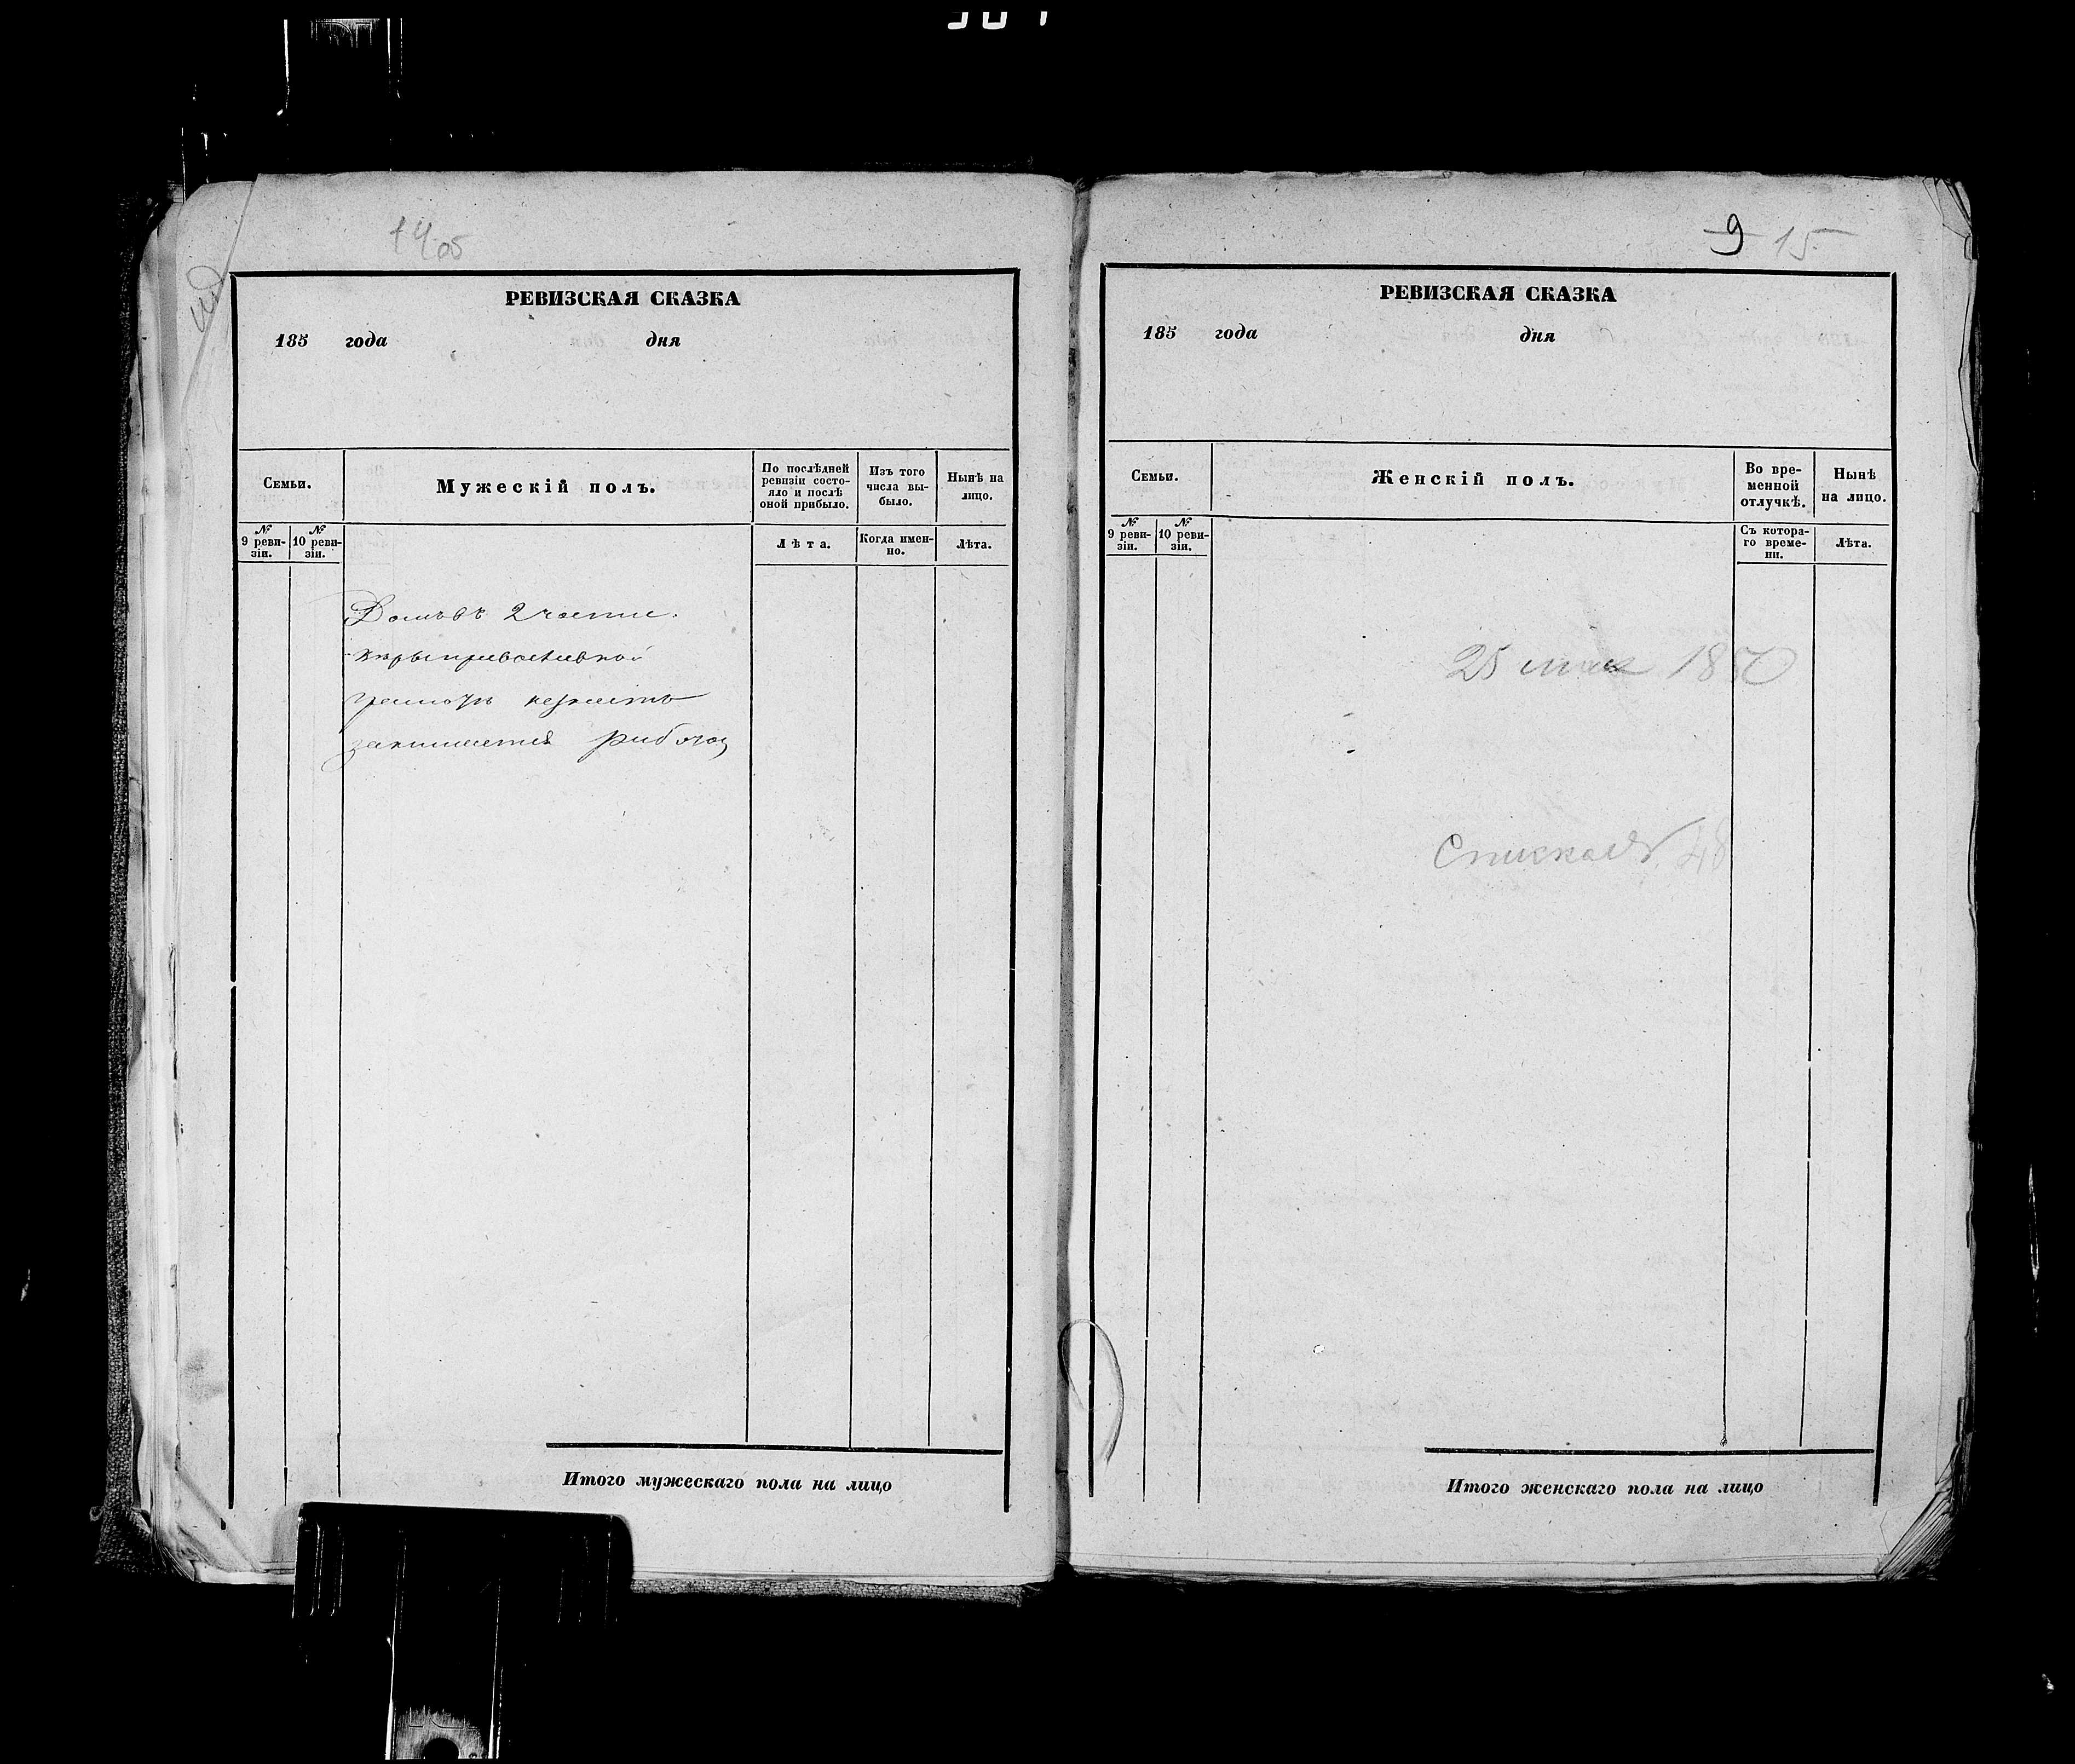 14об
РЕВИЗСКАЯ СКАЗКА
185 года дня
Семьи.
Мужескій полъ.
По послѣдней ревизіи состо-
яло и послѣ
оной прибыло.
Изъ того
числа вы-
было.
Нынѣ на
лицо.
№
9 реви-
зіи.
№
10 реви-
зіи.
Лѣта.
Когда имен-
но.
Лѣта.
Домъ въ 2 части.
грамотѣ незнаетъ
занимается
Итого мужескаго пола на лицо
9 15
РЕВИЗСКАЯ СКАЗКА
185 года дня
Семьи.
Женскій полъ.
Во вре-
менной
отлучкѣ.
Нынѣ
на лицо.
№
9 реви-
зіи.
№
10 реви-
зіи.
Съ котора-
го време-
ни.
Лѣта.
25 мая 1850
48
Итого женскаго пола на лицо